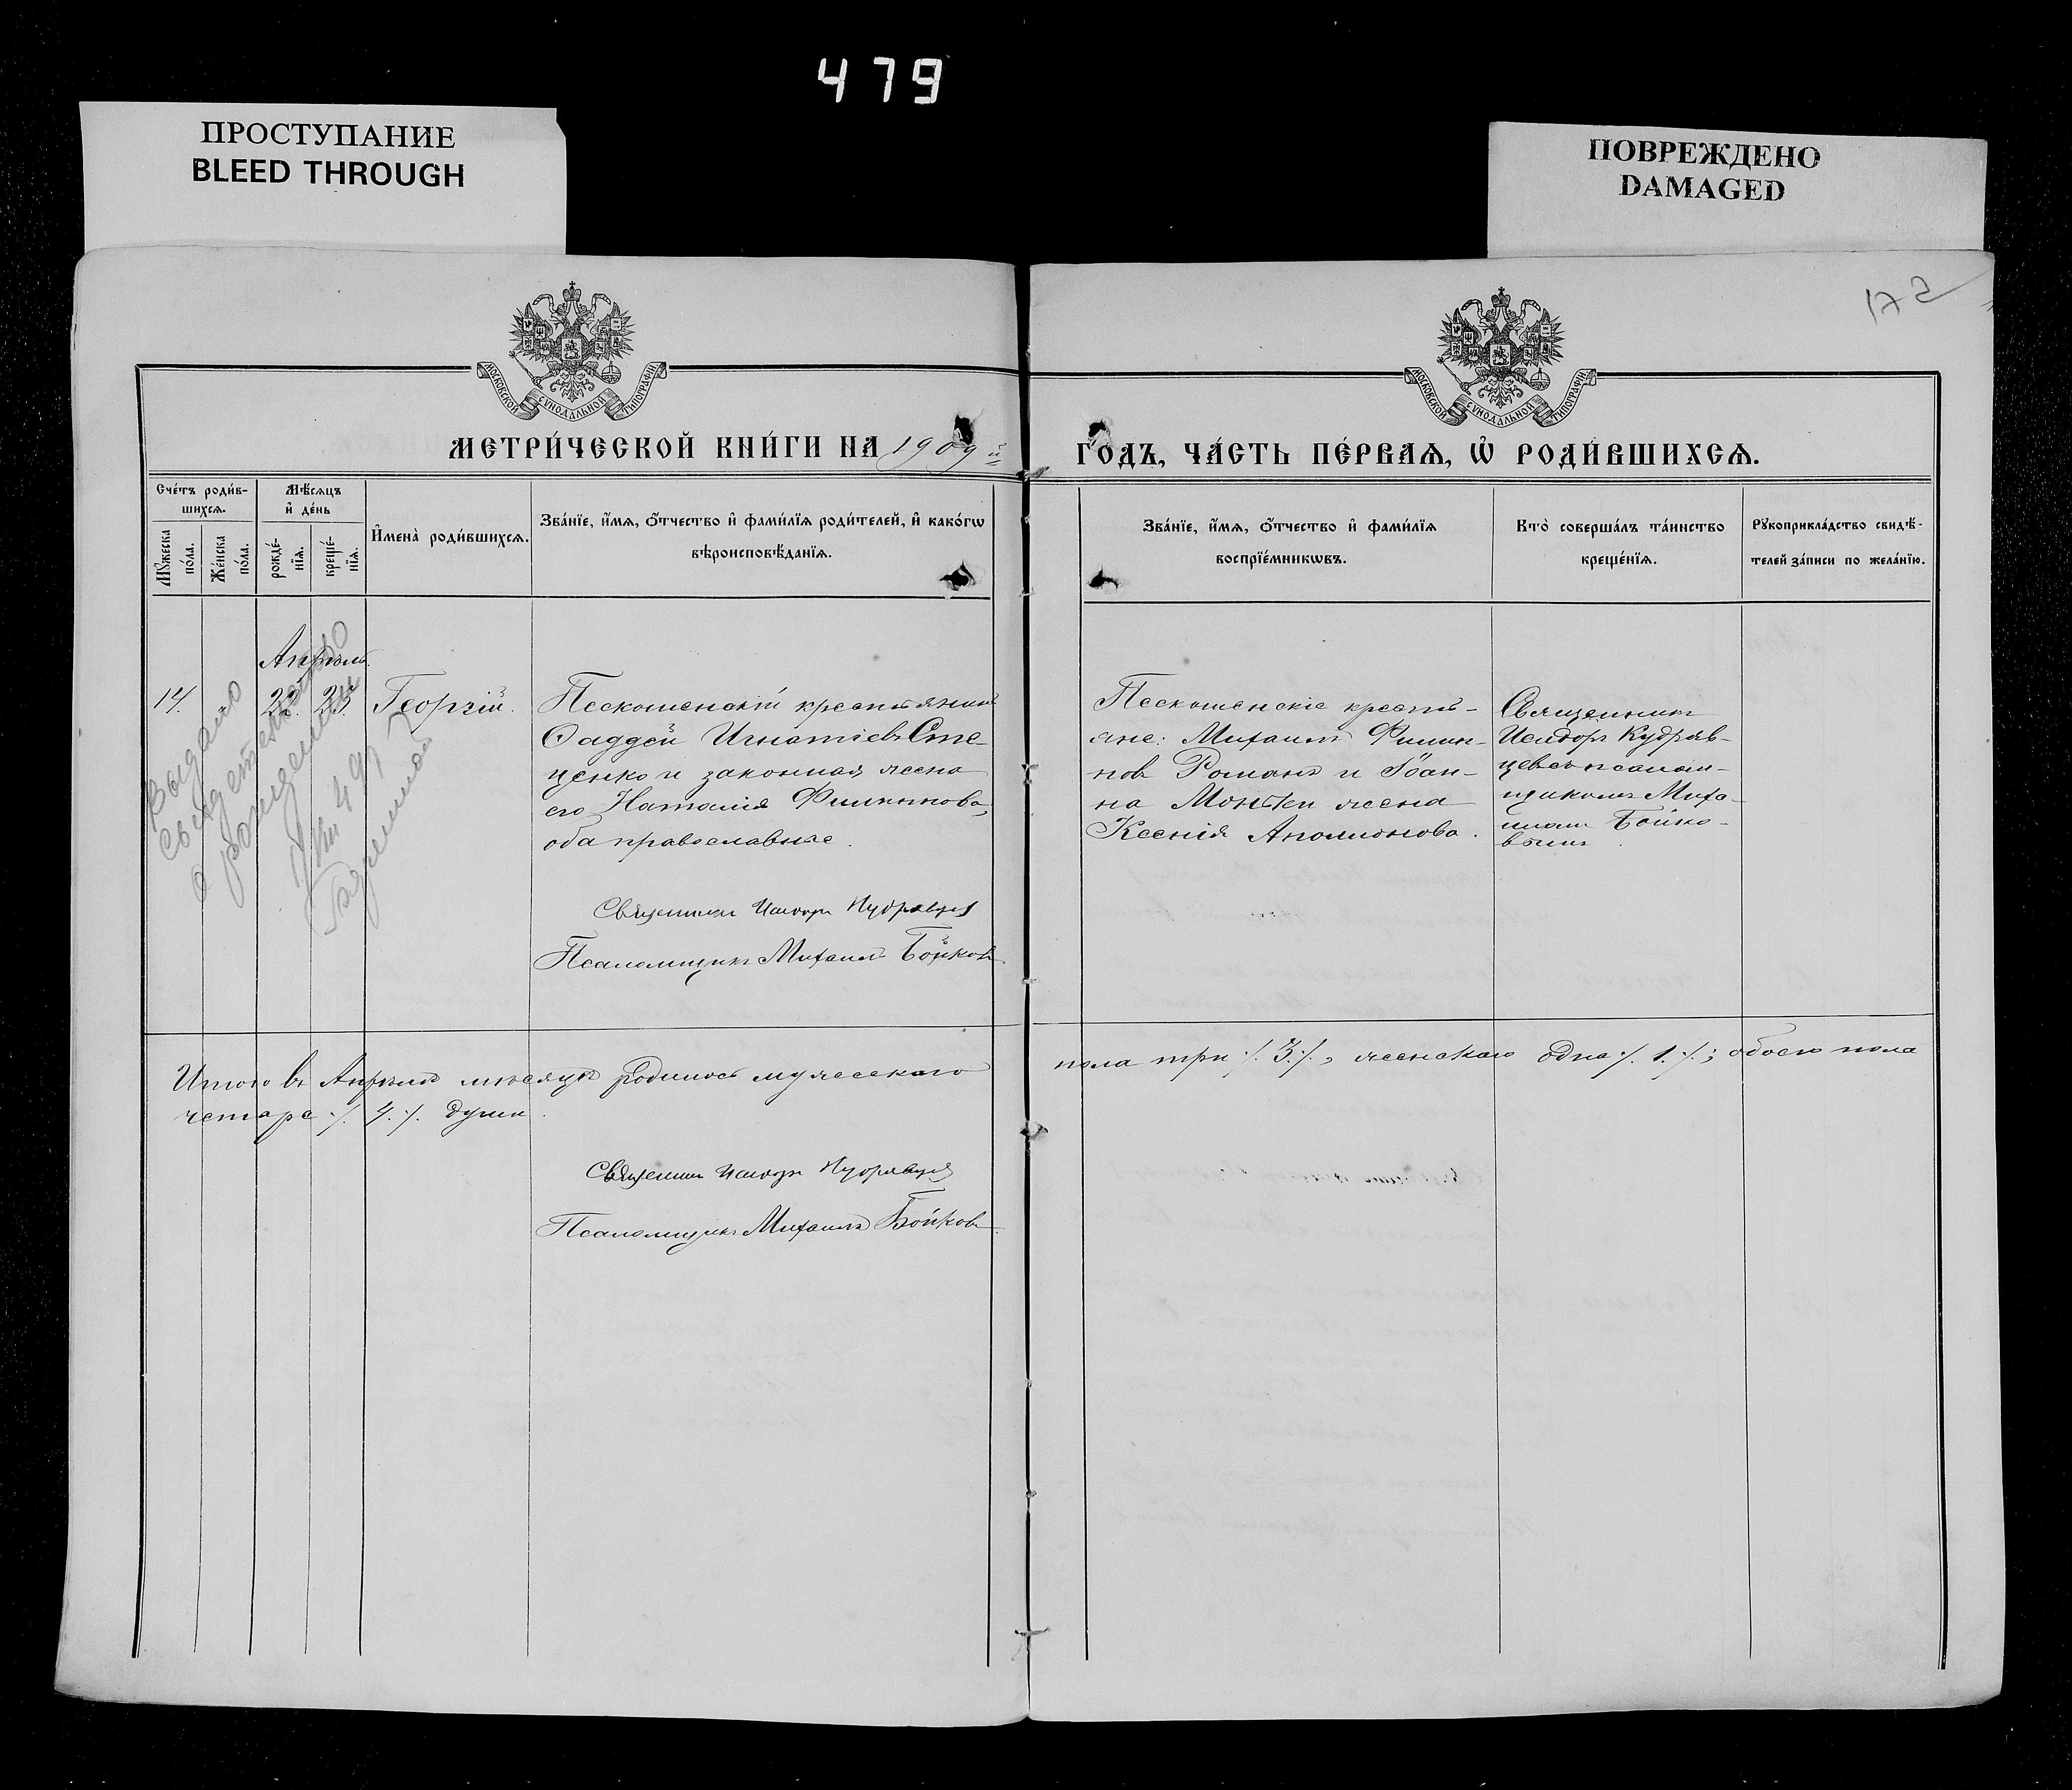 479
ПРОСТУПАНИЕ
BLEED THROUGH
ПОВРЕЖДЕНО
DAMAGED
172
МОСКОВСКОЙ СѴНОДАЛЬНОЙ ТИПОГРАФІИ
МОСКОВСКОЙ СѴНОДАЛЬНОЙ ТИПОГРАФІИ
МЕТРИ́ЧЕСКОЙ КНИ́ГИ НА 1909й
ГО́ДЪ, ЧА́СТЬ ПЕ́РВАѦ, Ѡ҆ РОДИ́ВШИХСѦ.
Сче́тъ роди́в-
шихсѧ.
Мꙋ́жеска по́ла.
Же́нска по́ла.
Мѣ́сѧцъ и҆ де́нь
рожде́-нїѧ.
креще́-нїѧ.
И҆мена̀ роди́вшихсѧ.
Зва́нїе, и҆́мѧ, ѻ҆́тчество и҆ фами́лїѧ роди́телей, и҆ како́гѡ
вѣроисповѣ́данїѧ.
Зва́нїе, и҆́мѧ, ѻ҆́тчество и҆ фами́лїѧ
воспрїе́мникѡвъ.
Кто̀ соверша́лъ та́инство
креще́нїѧ.
Рꙋкоприкла́дство свидѣ́-
телей за́писи по жела́нїю.
Апрѣль.
14. " 22. 23. Георгій.
Пескошенскій крестьянинъ
Ѳаддей Игнатіевъ Сте-
ценко и законная жена
его Наталія Филиппова,
оба православные.
Священникъ Исидоръ Кудрявцев
Псаломщикъ Михаилъ Бойковъ
Пескошенскіе кресть-
яне: Михаилъ Филип-
повъ Романъ и Іоан-
на жена
Ксенія Аполлонова.
Священникъ
Исидоръ Кудряв-
цевъ съ псалом-
щикомъ Миха-
иломъ Бойко-
вымъ.
Выдано
свидетельство
о рождении
Итого въ Апрѣлѣ мѣсяцѣ родилось мужескаго
пола три ·/.3./·, женскаго одна ·/.1./·; обоего пола
четыре ·/.4./· души.
Священникъ Исидоръ Кудрявцев
Псаломщикъ Михаилъ Бойковъ